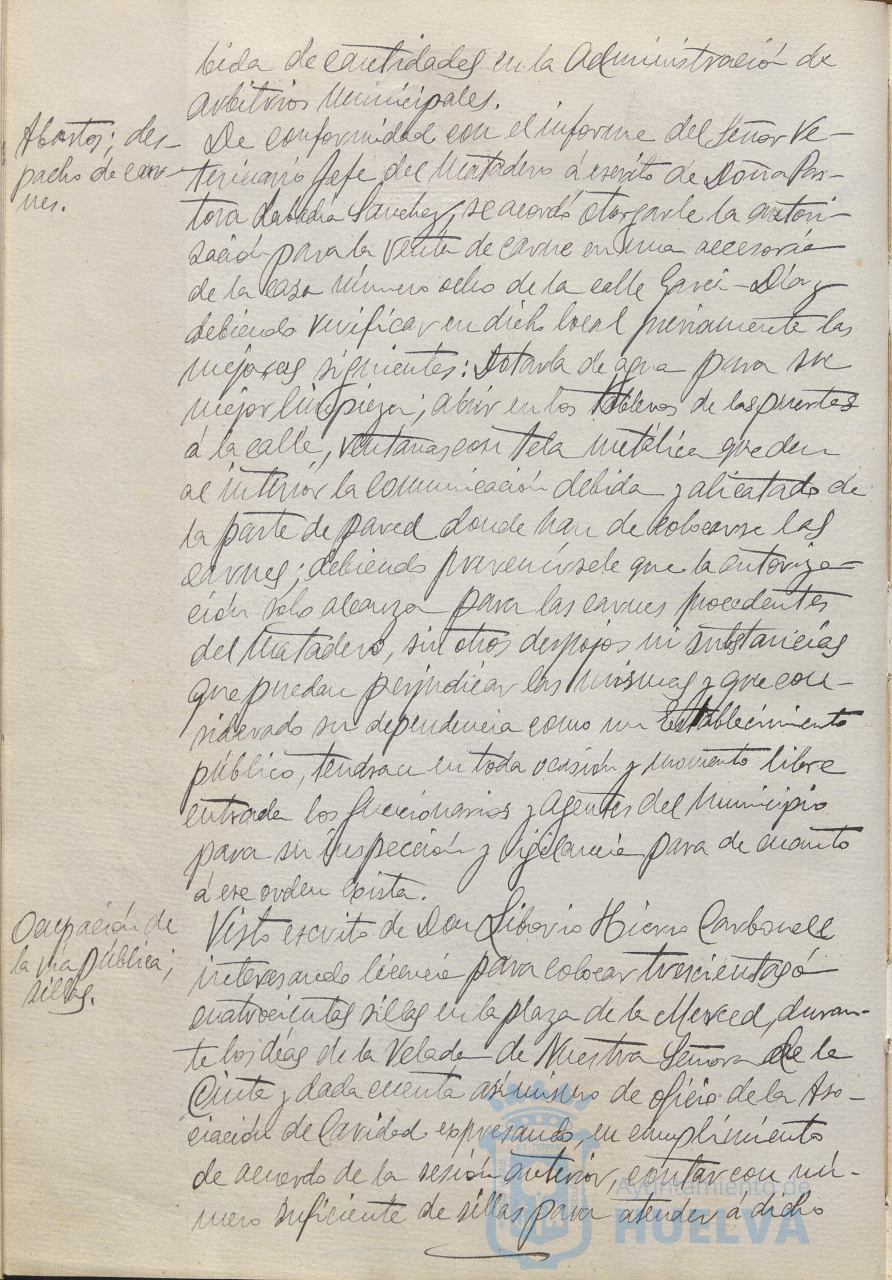 bida de cantidades en la Administración de
arbitrios municipales.
Abastos; des-
pacho de car-
nes.
De conformidad con el informe del Señor Ve-
terinario Jefe del Matadero á escrito de Doña Pas-
tora Labadía Sánchez, se acordó otorgarle la autori-
zación para la venta de carne en una accesoria
de la casa número ocho de la calle Garci-Díaz
debiendo verificar en dicho local previamente las
mejoras siguientes: Dotarla de agua para su
mejor limpieza; abrir en los tableros de las puertas
á la calle, ventanas con tela metálica que den
al interior la comunicación debida y alicatado de
la parte de pared donde han de colocarse las
carnes; debiendo prevenírsele que la autoriza-
ción solo alcanza para las carnes procedentes
del Matadero, sin otros despojos ni substancias
que puedan perjudicar las mismas y que con-
siderado su dependencia como un Establecimiento
público, tendran en toda ocasión y momento libre
entrada los funcionarios y agentes del Municipio
para su inspección y vigilancia para de cuanto
á ese orden exista.
Ocupación de
la vía pública;
sillas.
Visto escrito de Don Liborio Hierro Carbonell
interesando licencia para colocar trescientas ó
cuatrocientas sillas en la plaza de la Merced, duran-
te los días de la Velada de Nuestra Señora de la
Cinta y dada cuenta asimismo de oficio de la Aso-
ciación de Caridad expresando, en cumplimiento
de acuerdo de la sesión anterior, contar con nú-
mero suficiente de sillas para atender á dicho
Ayuntamiento de
HUELVA